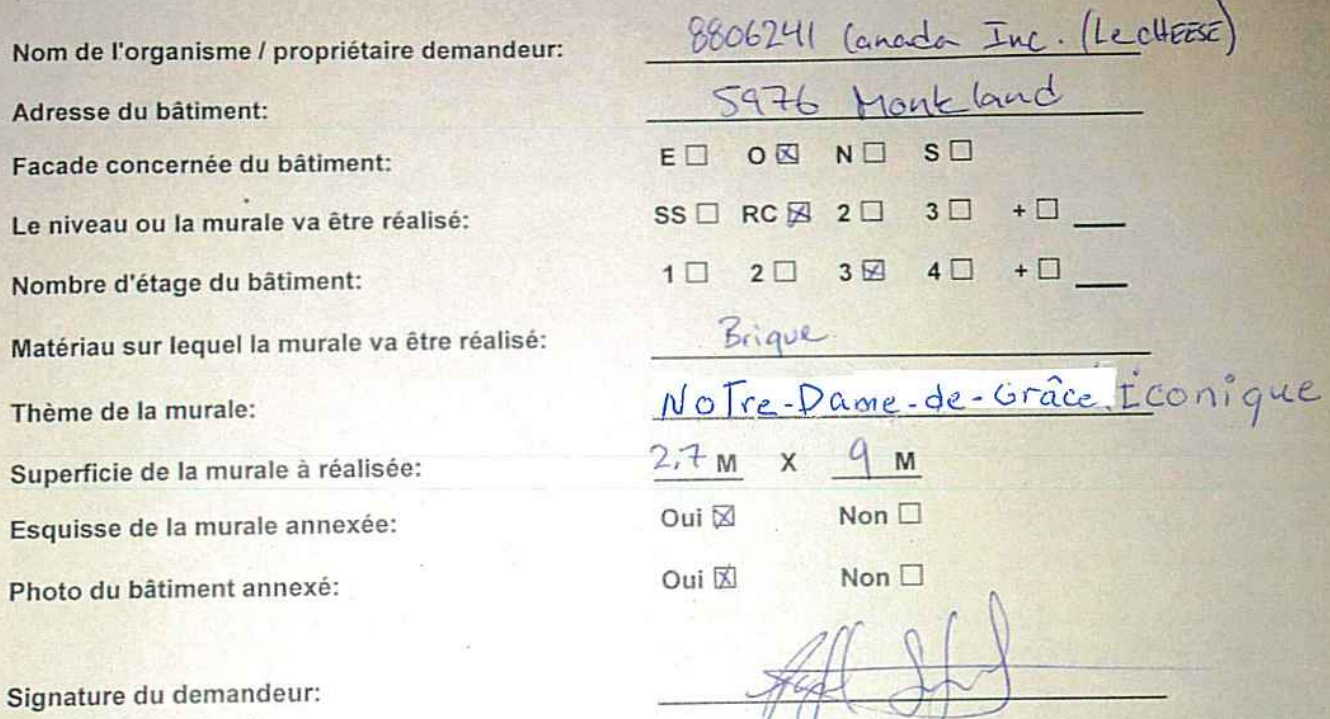 Nom de l'organisme / propriétaire demandeur: 8806241 Canada Inc. (Le CHEESE)
Adresse du bâtiment: 5976 Monkland
Facade concernée du bâtiment: E ☐ O ☒ N ☐ S ☐
Le niveau ou la murale va être réalisé: SS ☐ RC ☒ 2 ☐ 3 ☐ + ☐ ___
Nombre d'étage du bâtiment: 1 ☐ 2 ☐ 3 ☒ 4 ☐ + ☐ ___
Matériau sur lequel la murale va être réalisé: Brique
Thème de la murale: Notre-Dame-de-Grâce Iconique
Superficie de la murale à réalisée: 2,7 M X 9 M
Esquisse de la murale annexée: Oui ☒ Non ☐
Photo du bâtiment annexé: Oui ☒ Non ☐
Signature du demandeur: